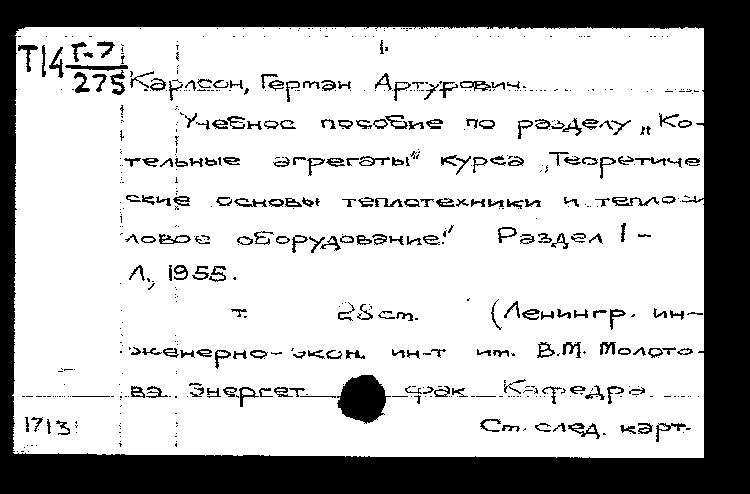 1.
Т14 Г-7
275
Карлсон, Герман Артурович.
Учебное пособие по разделу „Ко-
тельные агрегаты" курса „Теоретиче
ские основы теплотехники и
ловое оборудование." Раздел 1 –
Л., 1955.
т. 28 см. (Ленингр. ин-
женерно-экон. ин-т им. В.М. Молото-
ва Энергет. фак Кафедра
1713
См. след. карт.